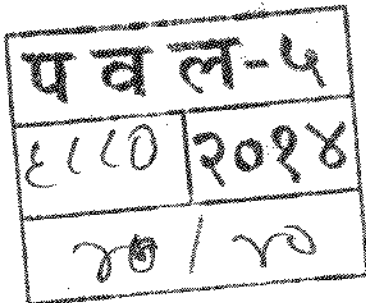 पवल-५
६८८० २०१४
४० / ४०